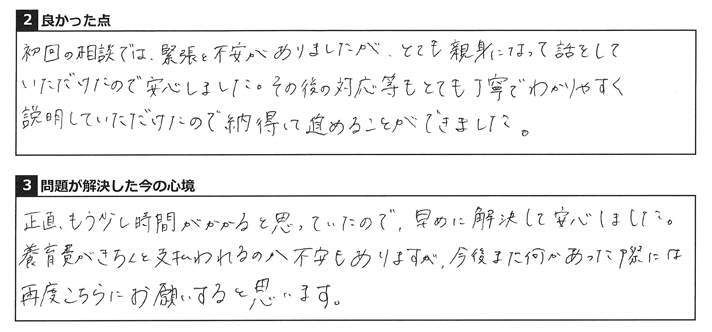 2 良かった点
初回の相談では、緊張と不安がありましたが、とても親身になって話をして
いただけたので安心しました。その後の対応等もとても丁寧でわかりやすく
説明していただけたので納得して進めることができました。
3 問題が解決した今の心境
正直、もう少し時間がかかると思っていたので、早めに解決して安心しました。
養育費がきちんと支払われるのか不安もありますが、今後また何かあった際には
再度こちらにお願いすると思います。